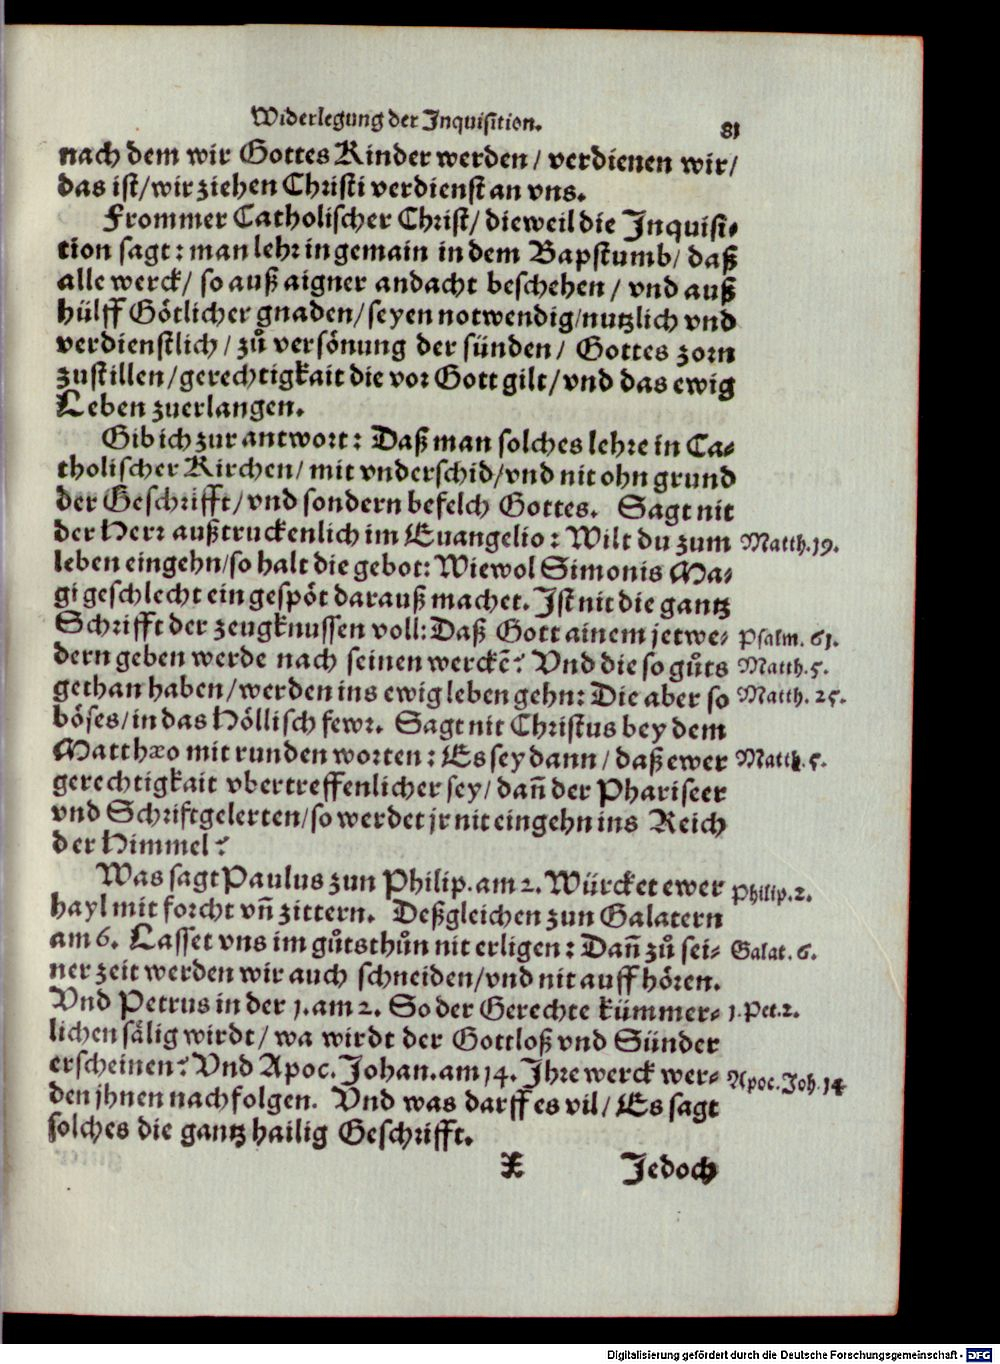 Widerlegung der Inquisition. 81
nach dem wir Gottes Kinder werden / verdienen wir /
das ist / wir ziehen Christi verdienst an vns.
Frommer Catholischer Christ / dieweil die Inquisi-
tion sagt : man lehr in gemain in dem Bapstumb / daß
alle werck / so auß aigner andacht beschehen / vnd auß
hülff Götlicher gnaden / seyen notwendig / nutzlich vnd
verdienstlich / zů versönung der sünden / Gottes zorn
zustillen / gerechtigkait die vor Gott gilt / vnd das ewig
Leben zuerlangen.
Gib ich zur antwort : Daß man solches lehre in Ca-
tholischer Kirchen / mit vnderschid / vnd nit ohn grund
der Geschrifft / vnd sondern befelch Gottes. Sagt nit
der Herr außtruckenlich im Euangelio : Wilt du zum Matth. 19.
leben eingehn / so halt die gebot : Wiewol Simonis Ma-
gi geschlecht ein gespöt darauß machet. Ist nit die gantz
Schrifft der zeugknussen voll : Daß Gott ainem jetwe- Psalm. 61.
dern geben werde nach seinen werckẽ? Vnd die so gůts Matth. 5.
gethan haben / werden ins ewig leben gehn : Die aber so Matth. 25.
böses / in das Höllisch fewr. Sagt nit Christus bey dem
Matthæo mit runden worten : Es sey dann / daß ewer Matth. 5.
gerechtigkait vbertreffenlicher sey / dañ der Phariseer
vnd Schriftgelerten / so werdet jr nit eingehn ins Reich
der Himmel?
Was sagt Paulus zun Philip. am 2. Würcket ewer Philip. 2.
hayl mit forcht vñ zittern. Deßgleichen zun Galatern
am 6. Lasset vns im gůtsthůn nit erligen : Dañ zů sei- Galat. 6.
ner zeit werden wir auch schneiden / vnd nit auff hören.
Vnd Petrus in der 1. am 2. So der Gerechte kümmer- 1. Pet. 2.
lichen sälig wirdt / wa wirdt der Gottloß vnd Sünder
erscheinen? Vnd Apoc. Johan. am 14. Ihre werck wer- Apoc. Joh. 14
den jhnen nachfolgen. Vnd was darff es vil / Es sagt
solches die gantz hailig Geschrifft.
X Jedoch
Digitalisierung gefördert durch die Deutsche Forschungsgemeinschaft - DFG